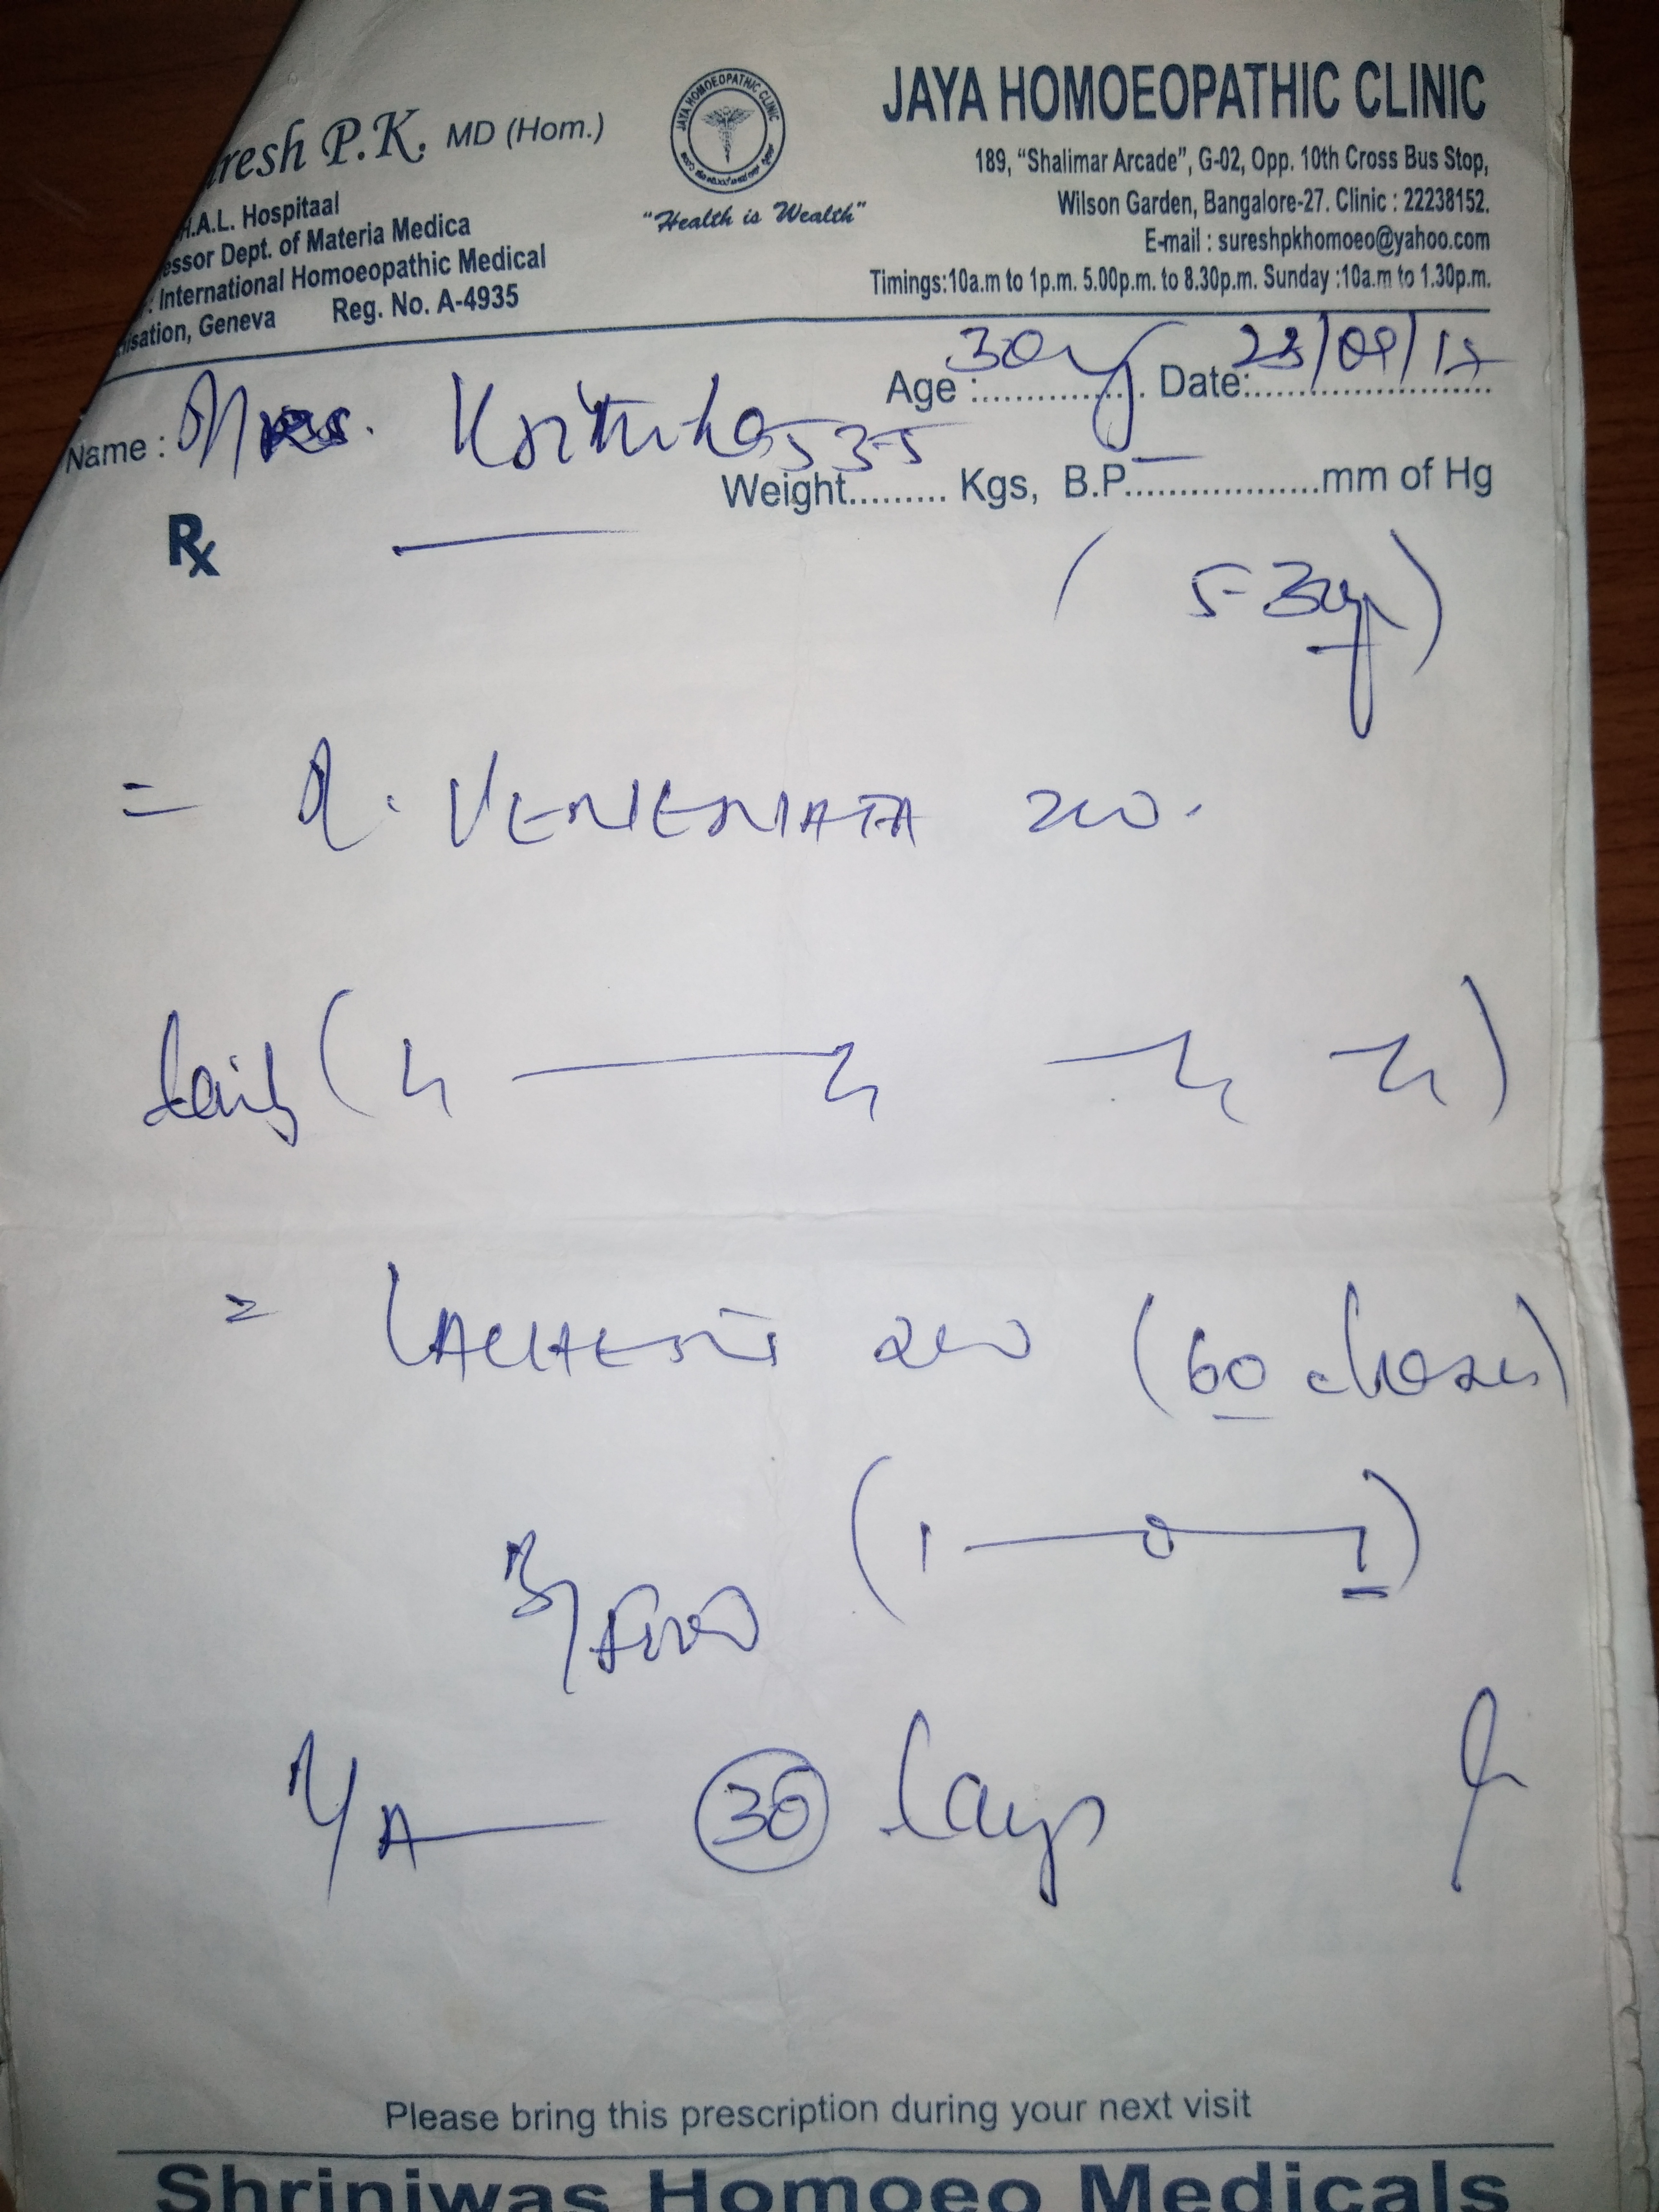 resh P.K. MD (Hom.)
H.A.L. Hospitaal
essor Dept. of Materia Medica
: International Homoeopathic Medical
isation, Geneva Reg. No. A-4935
JAYA HOMOEOPATHIC CLINIC
"Health is Wealth"
JAYA HOMOEOPATHIC CLINIC
189, "Shalimar Arcade", G-02, Opp. 10th Cross Bus Stop,
Wilson Garden, Bangalore-27. Clinic : 22238152.
E-mail : sureshpkhomoeo@yahoo.com
Timings:10a.m to 1p.m. 5.00p.m. to 8.30p.m. Sunday :10a.m to 1.30p.m.
Age : 30y Date:
Name : Mrs. Krithika
Weight 53.5 Kgs, B.P. – mm of Hg
Rx
= R. VENENATA 200.
daily
= LACHESIS 200 (60 doses)
B/Food (1 — 0 — 1)
R/A — 30 days
Please bring this prescription during your next visit
Shriniwas Homoeo Medicals